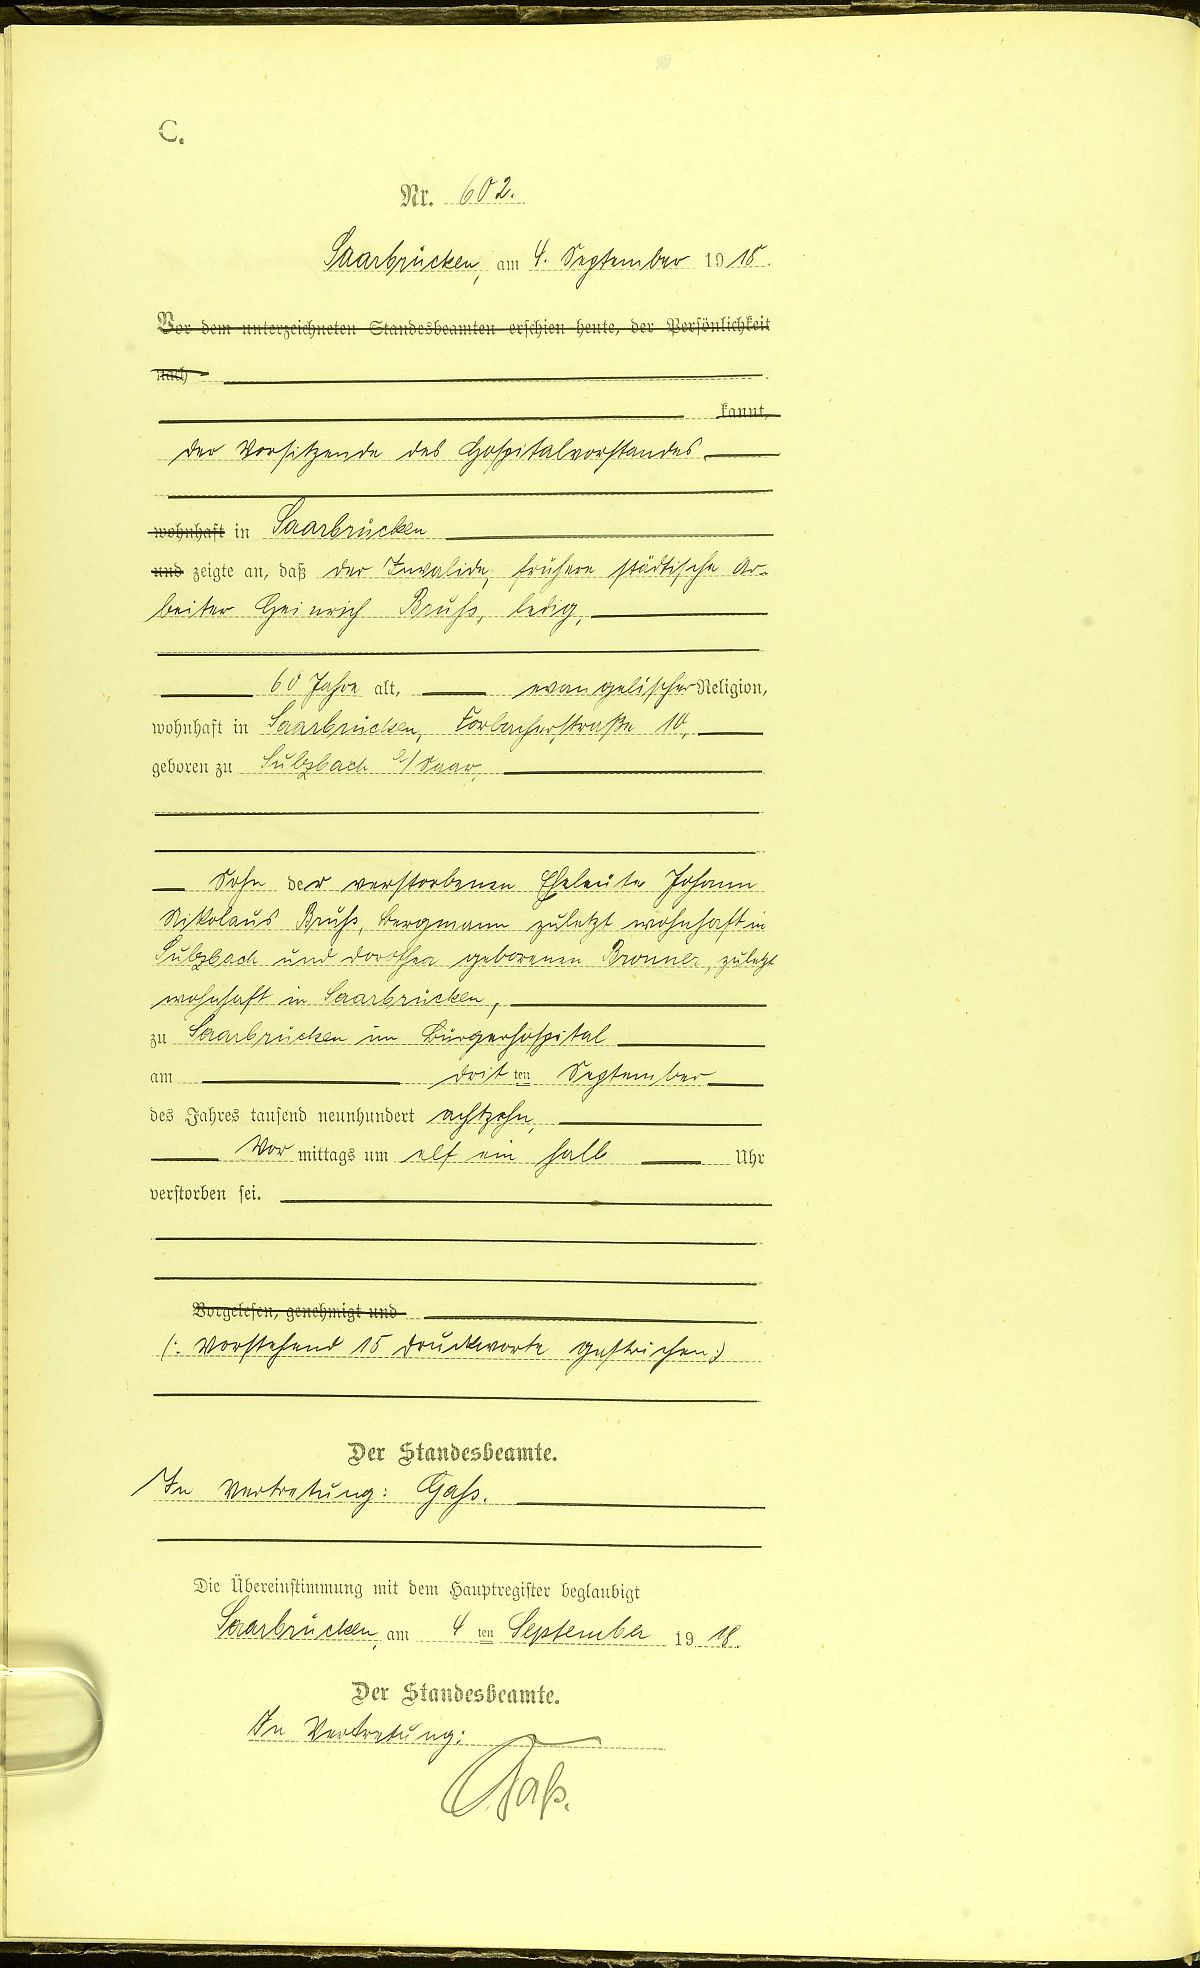 C.
Nr. 602.
Saarbrücken, am 4. September 1918.
Vor dem unterzeichneten Standesbeamten erschien heute, der Persönlichkeit
nach
kannt,
der Vorsitzende des Hospitalvorstandes
wohnhaft in Saarbrücken
und zeigte an, daß der Invalide, frühere städtische Ar-
beiter Heinrich Bruhs, ledig,
60 Jahre alt, evangelischer Religion,
wohnhaft in Saarbrücken, Forbacherstraße 10,
geboren zu Sulzbach a/Saar,
Sohn der verstorbenen Eheleute Johann
Nikolaus Bruhs, Bergmann zuletzt wohnhaft in
Sulzbach und Dorothea geborenen Bronner, zuletzt
wohnhaft in Saarbrücken,
zu Saarbrücken im Bürgerhospital
am dritten September
des Jahres tausend neunhundert achtzehn,
Vormittags um elf ein halb Uhr
verstorben sei.
Vorgelesen, genehmigt und
(: Vorstehend 15 Druckworte gestrichen :)
Der Standesbeamte.
In Vertretung: Gaß.
Die Übereinstimmung mit dem Hauptregister beglaubigt
Saarbrücken, am 4ten September 1918.
Der Standesbeamte.
In Vertretung:
Gaß.